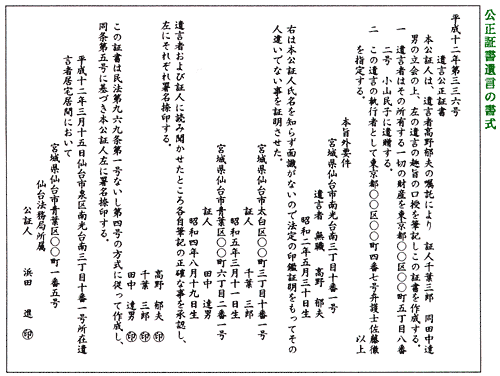 公正証書遺言の書式
平成十二年第三三六号
遺言公正証書
本公証人は、遺言者高野郁夫の嘱託により　証人千葉三郎　岡田中達
男の立会の上、左の遺言の趣旨の口授を筆記しこの証書を作成する。
一　遺言者はその所有する一切の財産を東京都〇〇区〇〇町五丁目八番
二号　小山民子に遺贈する。
二　この遺言の執行者として東京都〇〇区〇〇町四番七号弁護士佐藤徹
を指定する。
以上
本旨外要件
宮城県仙台市南光台南三丁目十番一号
遺言者　無職　高野　郁夫
昭和二年五月三十日生
右は本公証人氏名を知らず面識がないので法定の印鑑証明をもってその
人違いでない事を証明させた。
宮城県仙台市太白区〇〇町三丁目十番一号
証人　千葉　三郎
昭和五年三月十一日生
宮城県仙台市青葉区〇〇町六丁目二番一号
証人　田中　達男
昭和四年八月十九日生
遺言者および証人に読み聞かせたところ各自筆記の正確な事を承認し、
左にそれぞれ署名捺印する。
高野　郁夫　印
千葉　三郎　印
田中　達男　印
この証書は民法第九六九条第一号ないし第四号の方式に従って作成し、
同条第五号に基づき本公証人左に署名捺印する。
平成十二年三月十五日仙台市泉区南光台南三丁目十番一号所在遺
言者宅居間において
宮城県仙台市青葉区〇〇町一番五号
仙台法務局所属
公証人　浜田　進　印